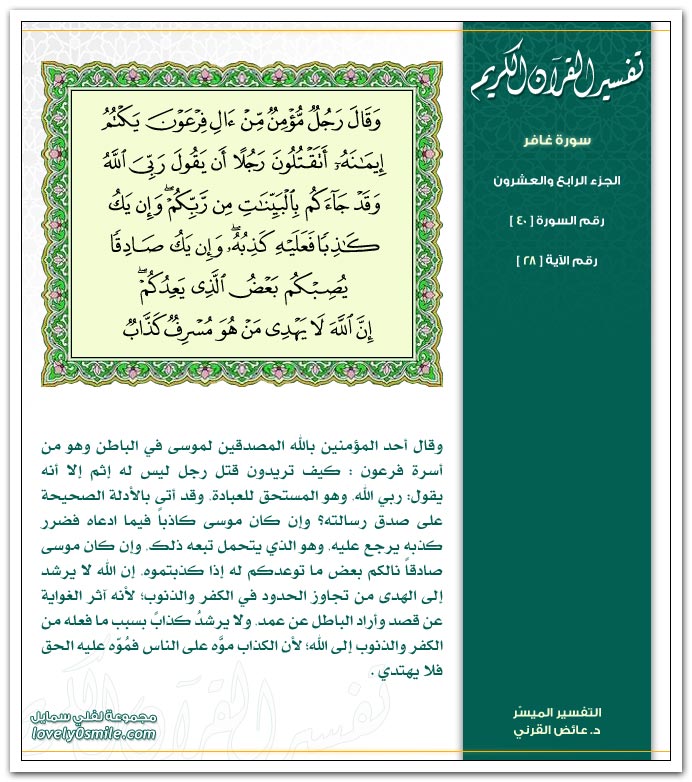 تفسير القرآن الكريم
سورة غافر
الجزء الرابع والعشرون
رقم السورة [ ٤٠ ]
رقم الآية [ ٢٨ ]
وَقَالَ رَجُلٌ مُّؤْمِنٌ مِّنْ ءَالِ فِرْعَوْنَ يَكْتُمُ
إِيمَـٰنَهُۥٓ أَتَقْتُلُونَ رَجُلًا أَن يَقُولَ رَبِّىَ ٱللَّهُ
وَقَدْ جَآءَكُم بِٱلْبَيِّنَـٰتِ مِن رَّبِّكُمْ ۖ وَإِن يَكُ
كَـٰذِبًا فَعَلَيْهِ كَذِبُهُۥ ۖ وَإِن يَكُ صَادِقًا
يُصِبْكُم بَعْضُ ٱلَّذِى يَعِدُكُمْ ۖ
إِنَّ ٱللَّهَ لَا يَهْدِى مَنْ هُوَ مُسْرِفٌ كَذَّابٌ
وقال أحد المؤمنين بالله المصدقين لموسى في الباطن وهو من
أسرة فرعون : كيف تريدون قتل رجل ليس له إثم إلا أنه
يقول: ربي الله، وهو المستحق للعبادة، وقد أتى بالأدلة الصحيحة
على صدق رسالته؟ وإن كان موسى كاذباً فيما ادعاه فضرر
كذبه يرجع عليه، وهو الذي يتحمل تبعه ذلك، وإن كان موسى
صادقاً نالكم بعض ما توعدكم له إذا كذبتموه، إن الله لا يرشد
إلى الهدى من تجاوز الحدود في الكفر والذنوب؛ لأنه آثر الغواية
عن قصد وأراد الباطل عن عمد، ولا يرشدُ كذابً بسبب ما فعله من
الكفر والذنوب إلى الله؛ لأن الكذاب موَّه على الناس فمُوّه عليه الحق
فلا يهتدي .
تفسير القرآن الكريم
مجموعة لفلي سمايل
lovely0smile.com
التفسير الميسّر
د. عائض القرني